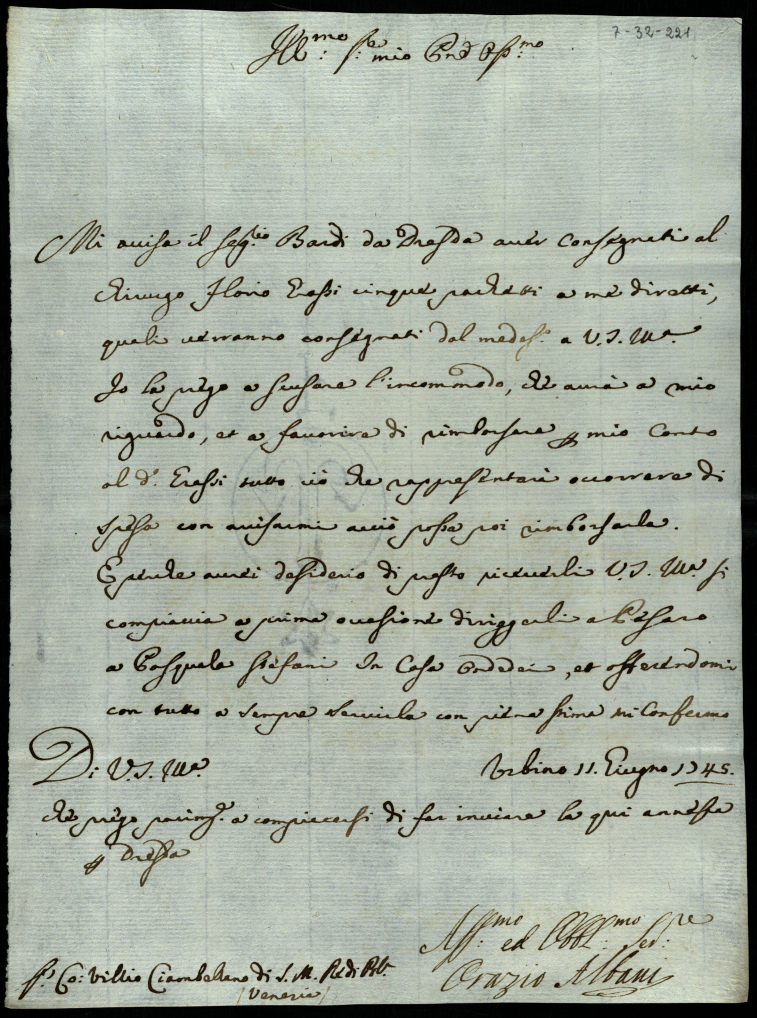 7-32-221
Ill:mo S:re mio Prõn Oss:mo
Mi avisa il Seg:rio Bardi da Dresda aver consegnati al
chirurgo Ilario Grassi cinque pachetti a me diretti,
quali verranno consegnati dal medes.o a V.S. Ill.a
Io la prego a scusare l'incommodo, che avrà a mio
riguardo, et a favorire di rimborsare p mio conto
al d.o Grassi tutto ciò che rappresentarà occorrere di
spesa con avisarmi acciò possa poi rimborsarla.
E perche avrei desiderio di presto riceverli V.S. Ill.a si
compiaccia a prima occasione diriggerli a Pesaro
a Pasquale Stefani In Casa, et offerendomi
con tutto a sempre servirla con pienissima mi confermo
Di V.S. Ill.a
Urbino 11. Giugno 1745.
che prego parim.e a compiacersi di far inviare la qui annessa
p Dresda
Aff:mo ed Obbl:mo Ser:re
Orazio Albani
S.r Co: Villio Ciambellano di S. M. Re di Pol.
(Venezia)